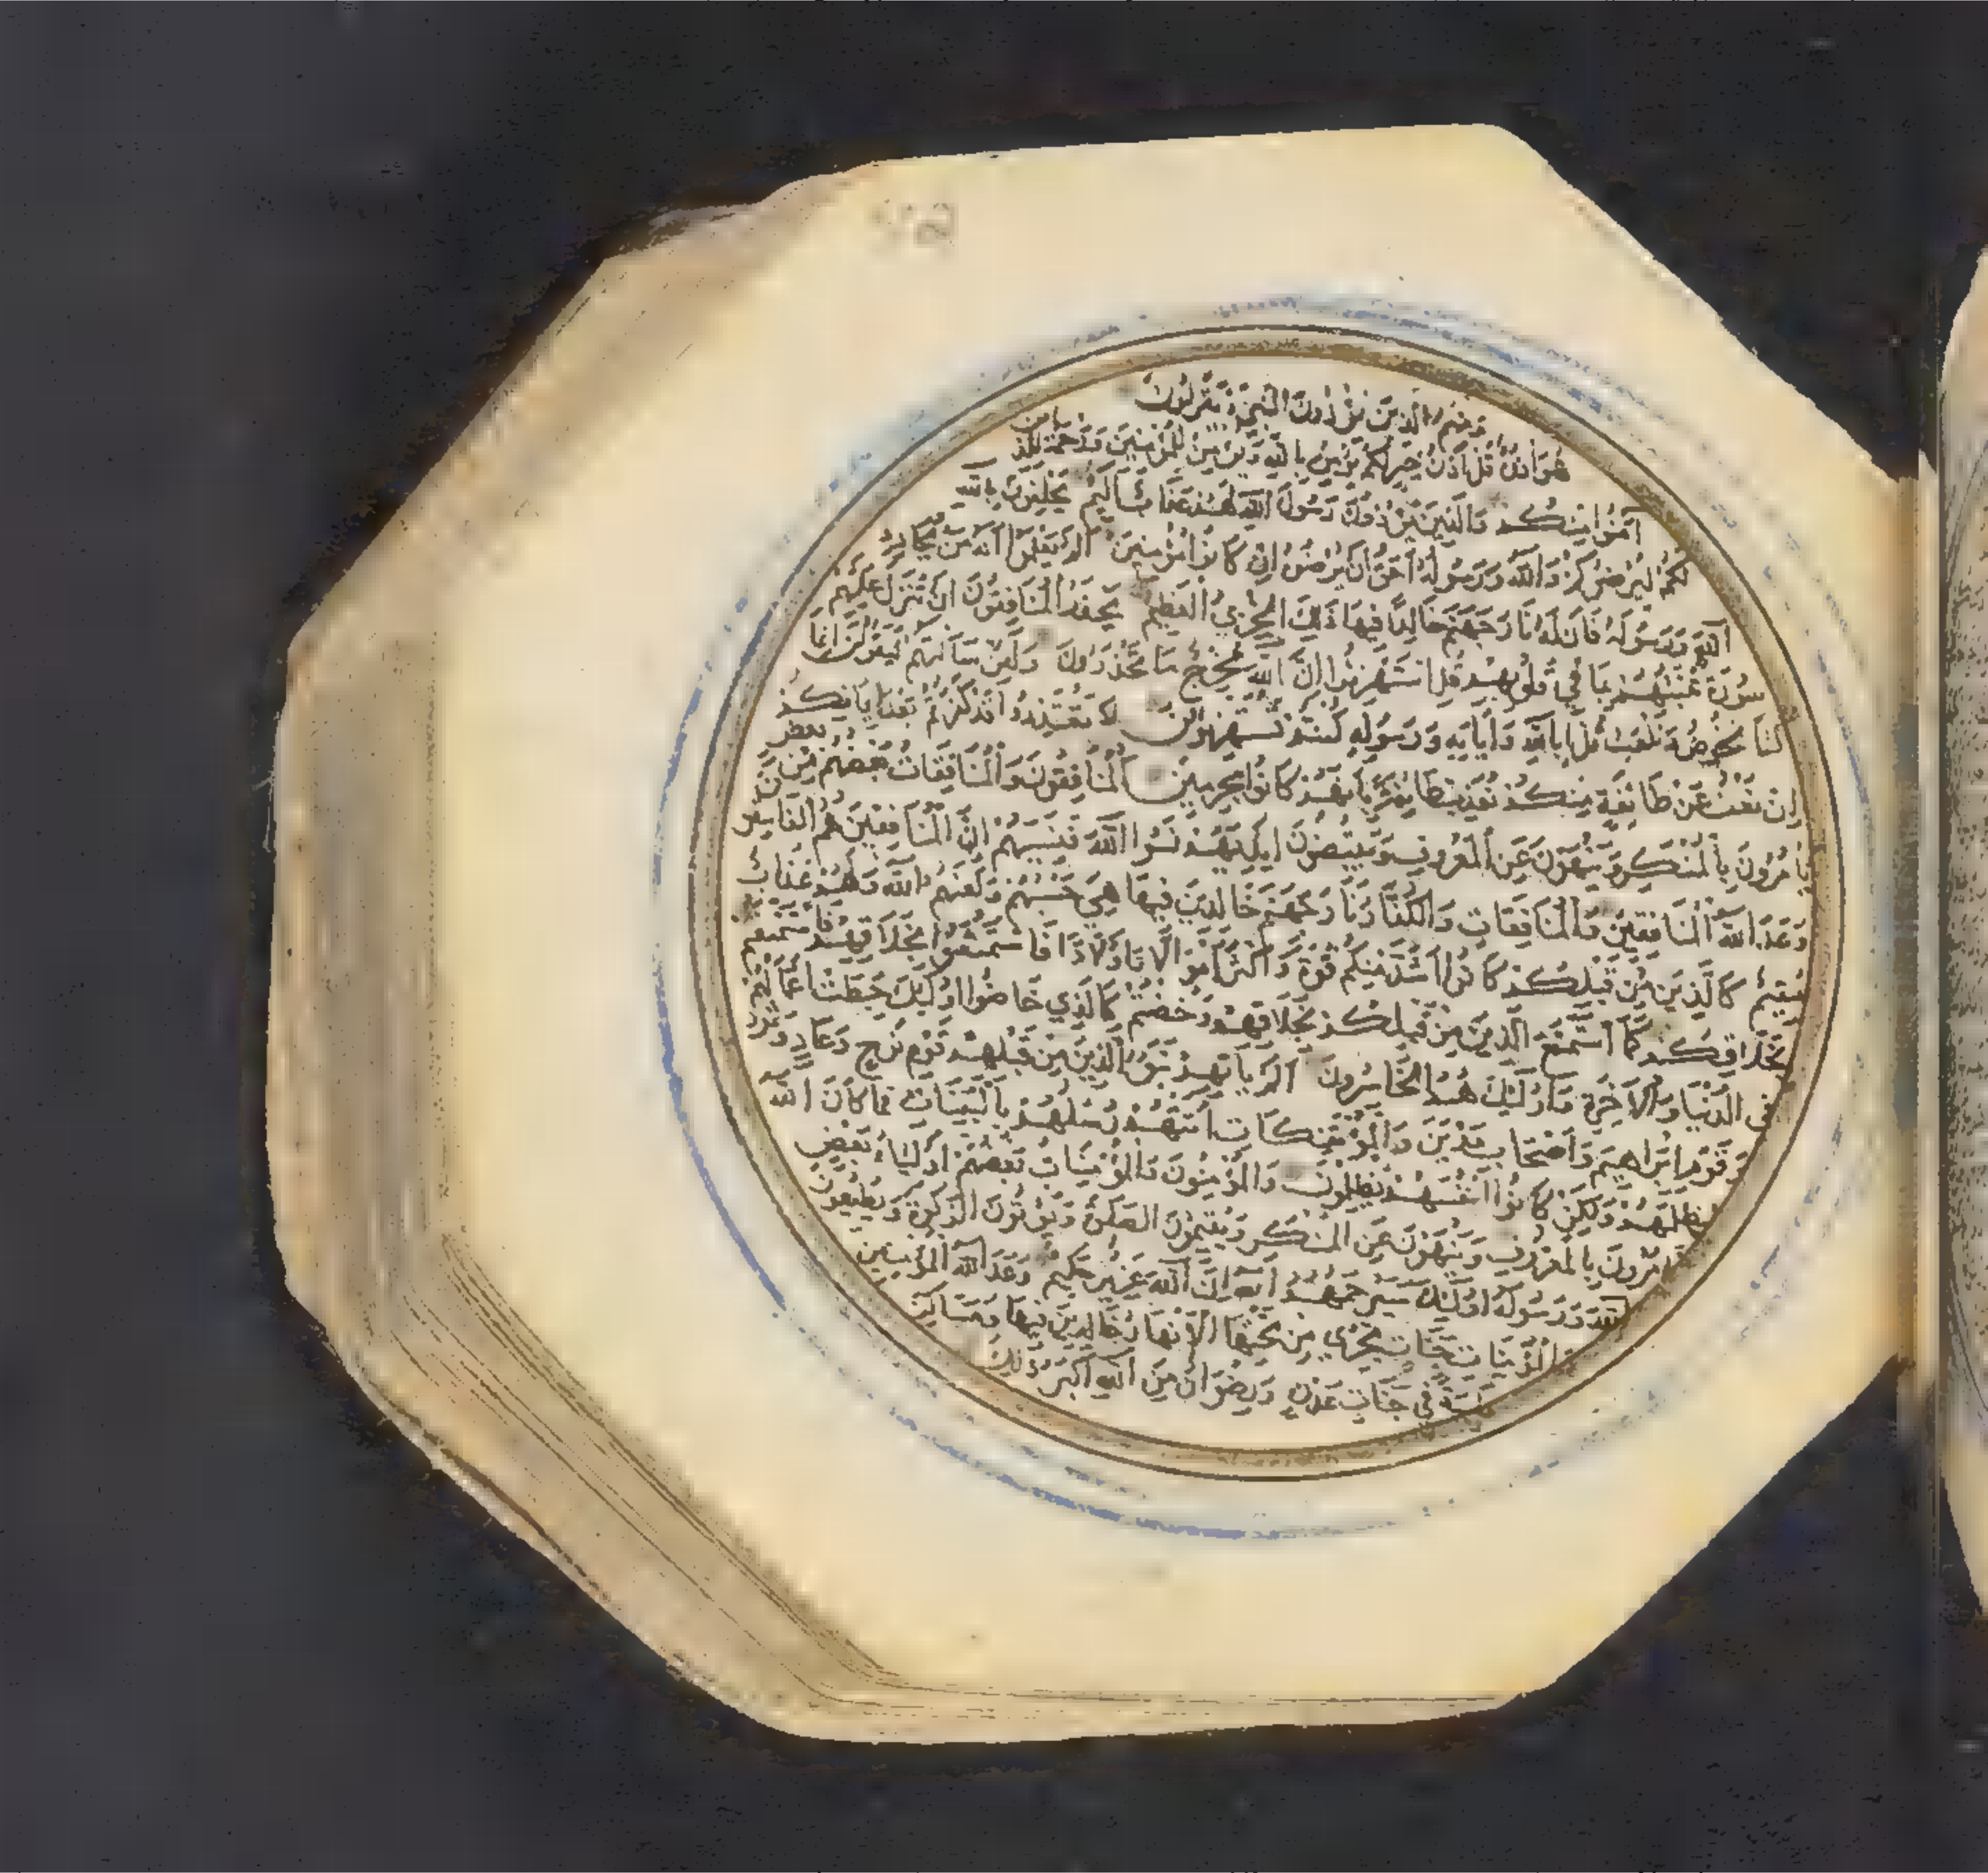 ومنهم الذين يؤذون النبي ويقولون
هو أذن قل أذن خير لكم يؤمن بالله ويؤمن للمؤمنين ورحمة للذين
آمنوا منكم والذين يؤذون رسول الله لهم عذاب أليم يحلفون بالله
لكم ليرضوكم والله ورسوله أحق أن يرضوه إن كانوا مؤمنين ألم يعلموا أنه من يحادد
الله ورسوله فان له نار جهنم خالدا فيها ذلك الخزي العظيم يحذر المنافقون ان تنزل عليهم
سورة تنبئهم بما في قلوبهم قل استهزئوا ان الله مخرج ما تحذرون ولئن سألتهم ليقولن إنما
كنا نخوض ونلعب قل أبالله وآياته ورسوله كنتم تستهزئون لا تعتذروا قد كفرتم بعد إيمانكم
إن نعف عن طائفة منكم نعذب طائفة بأنهم كانوا مجرمين المنافقون والمنافقات بعضهم من بعض
يأمرون بالمنكر وينهون عن المعروف ويقبضون أيديهم نسوا الله فنسيهم إن المنافقين هم الفاسقون
وعد الله المنافقين والمنافقات والكفار نار جهنم خالدين فيها هي حسبهم ولعنهم الله ولهم عذاب
مقيم كالذين من قبلكم كانوا أشد منكم قوة وأكثر أموالا وأولادا فاستمتعوا بخلاقهم فاستمتعتم
بخلاقكم كما استمتع الذين من قبلكم بخلاقهم وخضتم كالذي خاضوا اولئك حبطت أعمالهم
في الدنيا والآخرة واولئك هم الخاسرون ألم يأتهم نبؤ الذين من قبلهم قوم نوح وعاد وثمود
وقوم ابراهيم وأصحاب مدين والمؤتفكات أتتهم رسلهم بالبينات فما كان الله
ليظلمهم ولكن كانوا أنفسهم يظلمون والمؤمنون والمؤمنات بعضهم اولياء بعض
يأمرون بالمعروف وينهون عن المنكر ويقيمون الصلوة ويؤتون الزكوة ويطيعون
الله ورسوله اولئك سيرحمهم الله إن الله عزيز حكيم وعد الله المؤمنين
والمؤمنات جنات تجري من تحتها الأنهار خالدين فيها ومساكن
طيبة في جنات عدن ورضوان من الله أكبر ذلك